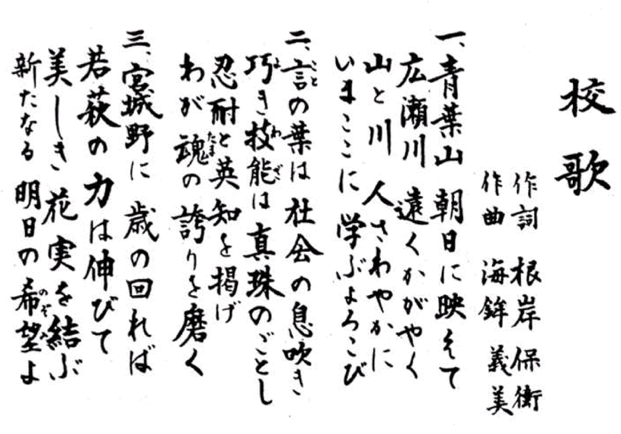 校歌
作詞 根岸保衛
作曲 海鉾義美
一、青葉山 朝日に映えて
広瀬川 遠くかがやく
山と川 人さわやかに
いまここに 学ぶよろこび
二、言の葉は 社会の息吹き
巧き技能は 真珠のごとし
忍耐と英知を掲げ
わが魂の 誇りを磨く
三、宮城野に 歳の回れば
若萩の 力は伸びて
美しき 花実を結ぶ
新たなる 明日の希望よ